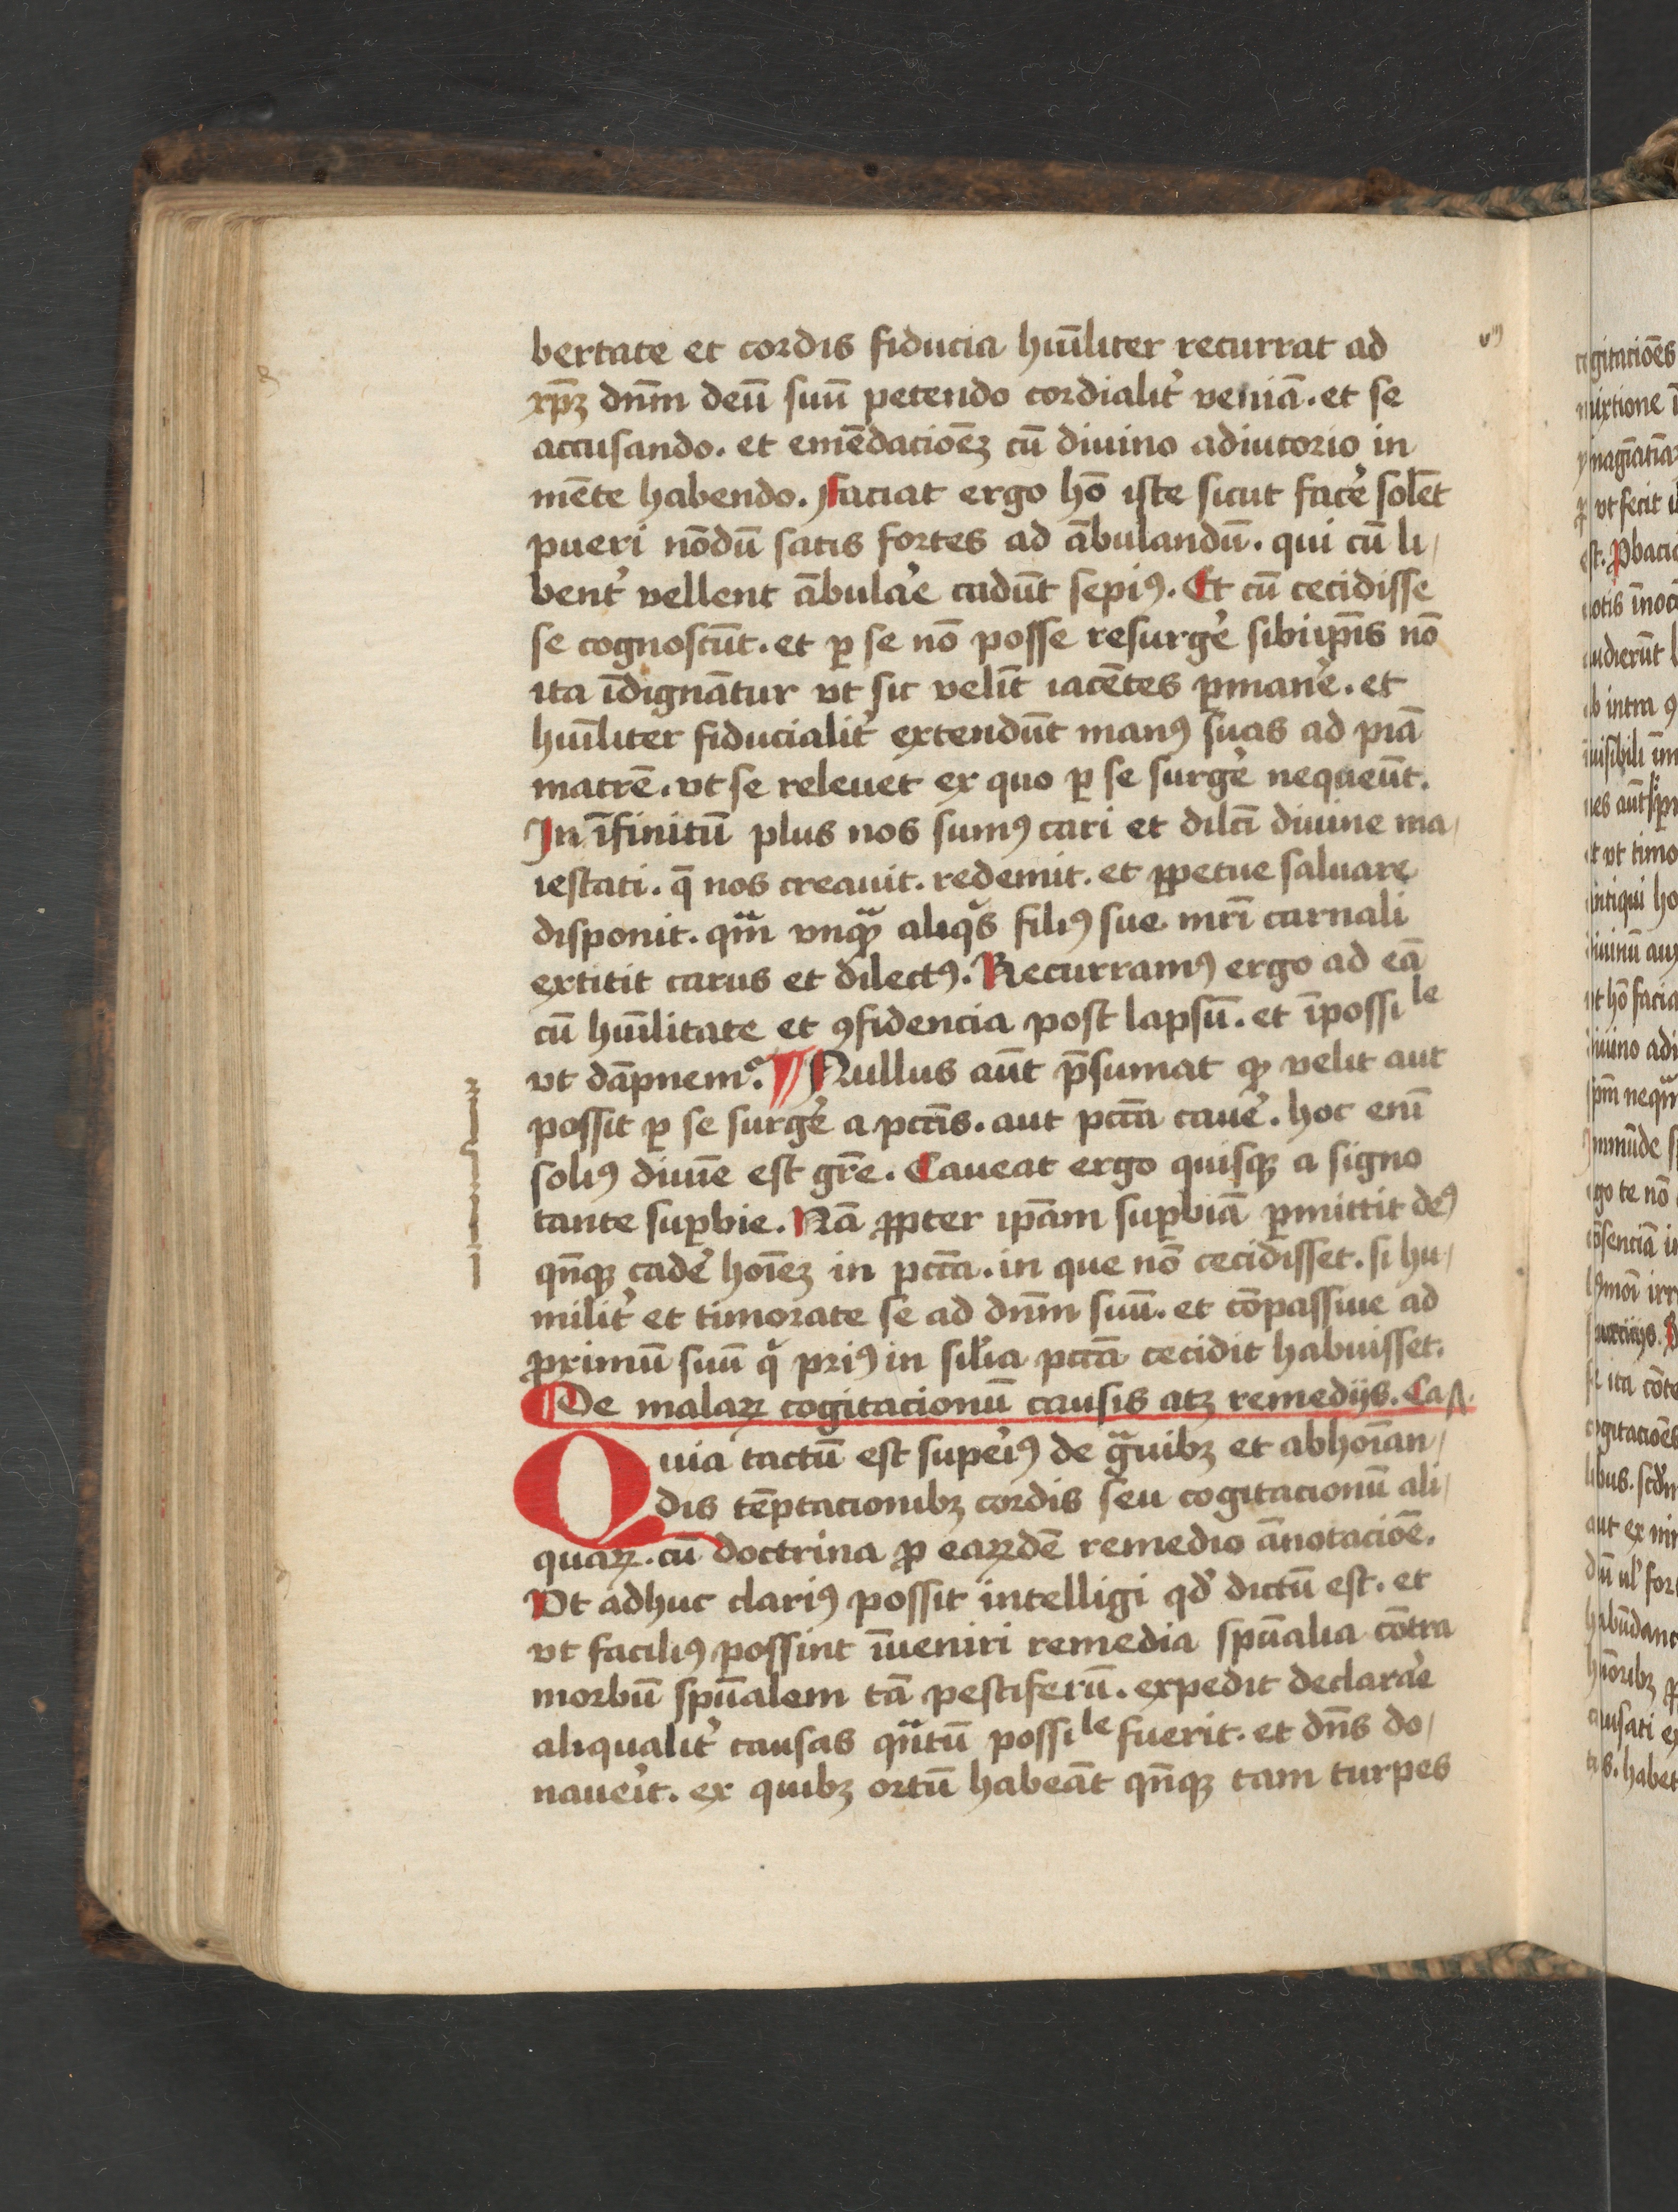 bertate et cordis fiducia hūīliter recurrat ad
xp̄ꝫ dn̄m deū suū petendo cordialit᾽ veniā. et se
accusando. et emēdacioēꝫ cū diuino adiutorio in
mēte habendo. Faciat ergo hō iste sicut facē᾽ solēt
pueri nōdū satis fortes ad ābulandū. qui cū li/
bent᾽ vellent ābula᾽e cadūt sepiꝰ. Et cū cecidisse
se cognoscūt. et ꝑ se nō posse resurge᾽ sibiip̄is nō
ita īdignātur vt sic velīt iacētes ꝑmane᾽. et
hūīliter fiducialit᾽ extendūt manꝰ suas ad piā
matrē. vt se releuet ex quo ꝑ se surge᾽ nequeūt.
In īfinitū plus nos sumꝰ cari et dilc̄i diuine ma/
iestati. q̄ nos creauit. redemit. et ꝑpetue saluare
disponit. qm̄ vnqꝫ aliqͣs filiꝰ sue mr̄i carnali
extitit carus et dilectꝰ. Recurramꝰ ergo ad eā
cū hūīlitate et ꝯfidencia post lapsū. et īpossi le
vt dāpnemᷣ. ¶ Nullus aūt p̄sumat ꝙ velit aut
possit ꝑ se surge᾽ a pctīs. aut pctā caue᾽. hoc enī
soliꝰ diuīe est gr̄e. Caueat ergo quisqꝫ a signo
tante suꝑbie. Nā ꝓpter ip̄am suꝑbiā ꝑmittit deꝰ
qn̄qꝫ cade᾽ hoīeꝫ in pctā. in que nō cecidisset. si hu/
milit᾽ et timorate se ad dn̄m suū. et cōpassiue ad
ꝓximū suū qͥ priꝰ in sil᾽ia pctā cecidit habuisset.
¶ De malaꝝ cogitacionū causis atꝫ remedijs. Ca
Quia tactū est supe᾽iꝰ de gͣuibꝫ et abhoīan/
dis tēptacionibꝫ cordis seu cogitacionū ali/
quaꝝ. cū doctrina ꝓ eaꝝdē remedio ānotacioē.
Vt adhuc clariꝰ possit intelligi qd᾽ dictū est. et
vt faciliꝰ possint īueniri remedia spūalia cōtra
morbū spūalem tā pestiferū. expedit declara᾽e
aliqualit᾽ causas qͣtū possi le fuerit. et dn̄s do/
naue᾽it. ex quibꝫ ortū habeāt qn̄qꝫ tam turpes